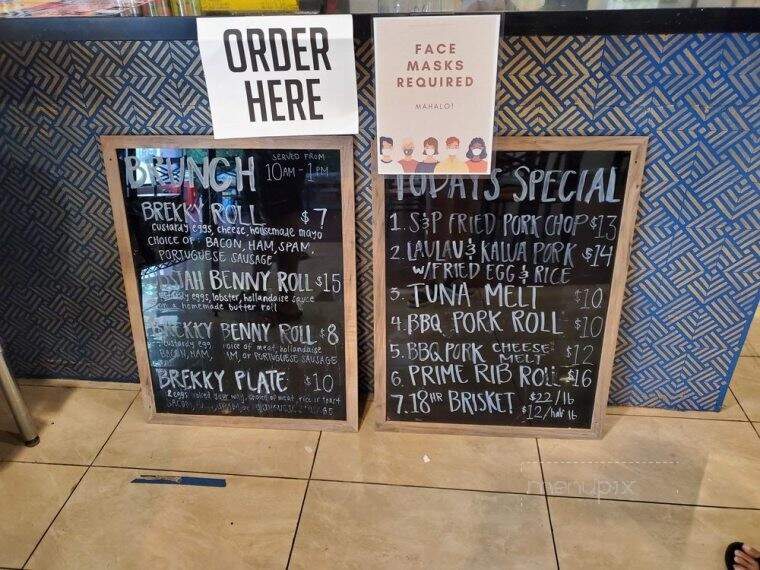 ORDER
HERE
FACE
MASKS
REQUIRED
MAHALO!
BRUNCH
SERVED FROM
10AM - 1PM
BREKKY ROLL $7
custardy eggs, cheese, housemade mayo
CHOICE OF: BACON, HAM, SPAM,
PORTUGUESE SAUSAGE
BENNY ROLL $15
eggs, lobster, hollandaise sauce
on a homemade butter roll
BREKKY BENNY ROLL $8
custardy egg, choice of meat, hollandaise
BACON, HAM, or PORTUGUESE SAUSAGE
BREKKY PLATE $10
2 eggs cooked your way, choice of meat, rice or toast
TODAYS SPECIAL
1. S&P FRIED PORK CHOP $13
2. LAULAU & KALUA PORK $14
W/FRIED EGG & RICE
3. TUNA MELT $10
4. BBQ PORK ROLL $10
5. BBQ PORK CHEESE MELT $12
6. PRIME RIB ROLL $16
7. 18HR BRISKET $22/lb
$12/half lb
menupix